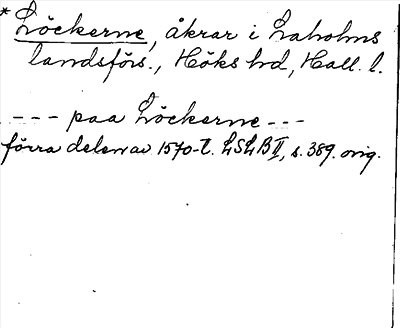 * Löckerne, åkrar i Laholms
landsförs., Höks hd, Hall. l.
--- paa Löckerne ---
förra delen av 1570-t. LSLB II, s. 389. orig.